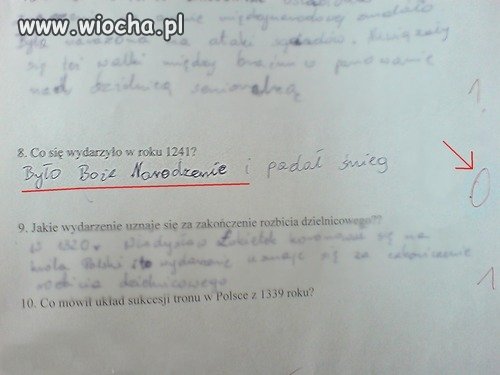 www.wiocha.pl
była narażona na ataki sąsiadów. Nawiązały
się też walki między braćmi o panowanie
nad dzielnicą senioralną
1
8. Co się wydarzyło w roku 1241?
Było Boże Narodzenie i padał śnieg
0
9. Jakie wydarzenie uznaje się za zakończenie rozbicia dzielnicowego??
W 1320 r. Władysław Łokietek koronował się na
króla Polski i to wydarzenie uznaje się za zakończenie
rozbicia dzielnicowego
1
10. Co mówił układ sukcesji tronu w Polsce z 1339 roku?